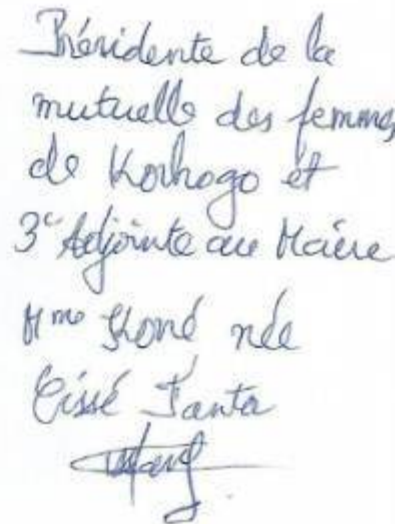 Présidente de la
mutuelle des femmes
de Korhogo et
3e Adjointe au Maire
Mme Koné née
Cissé Fanta